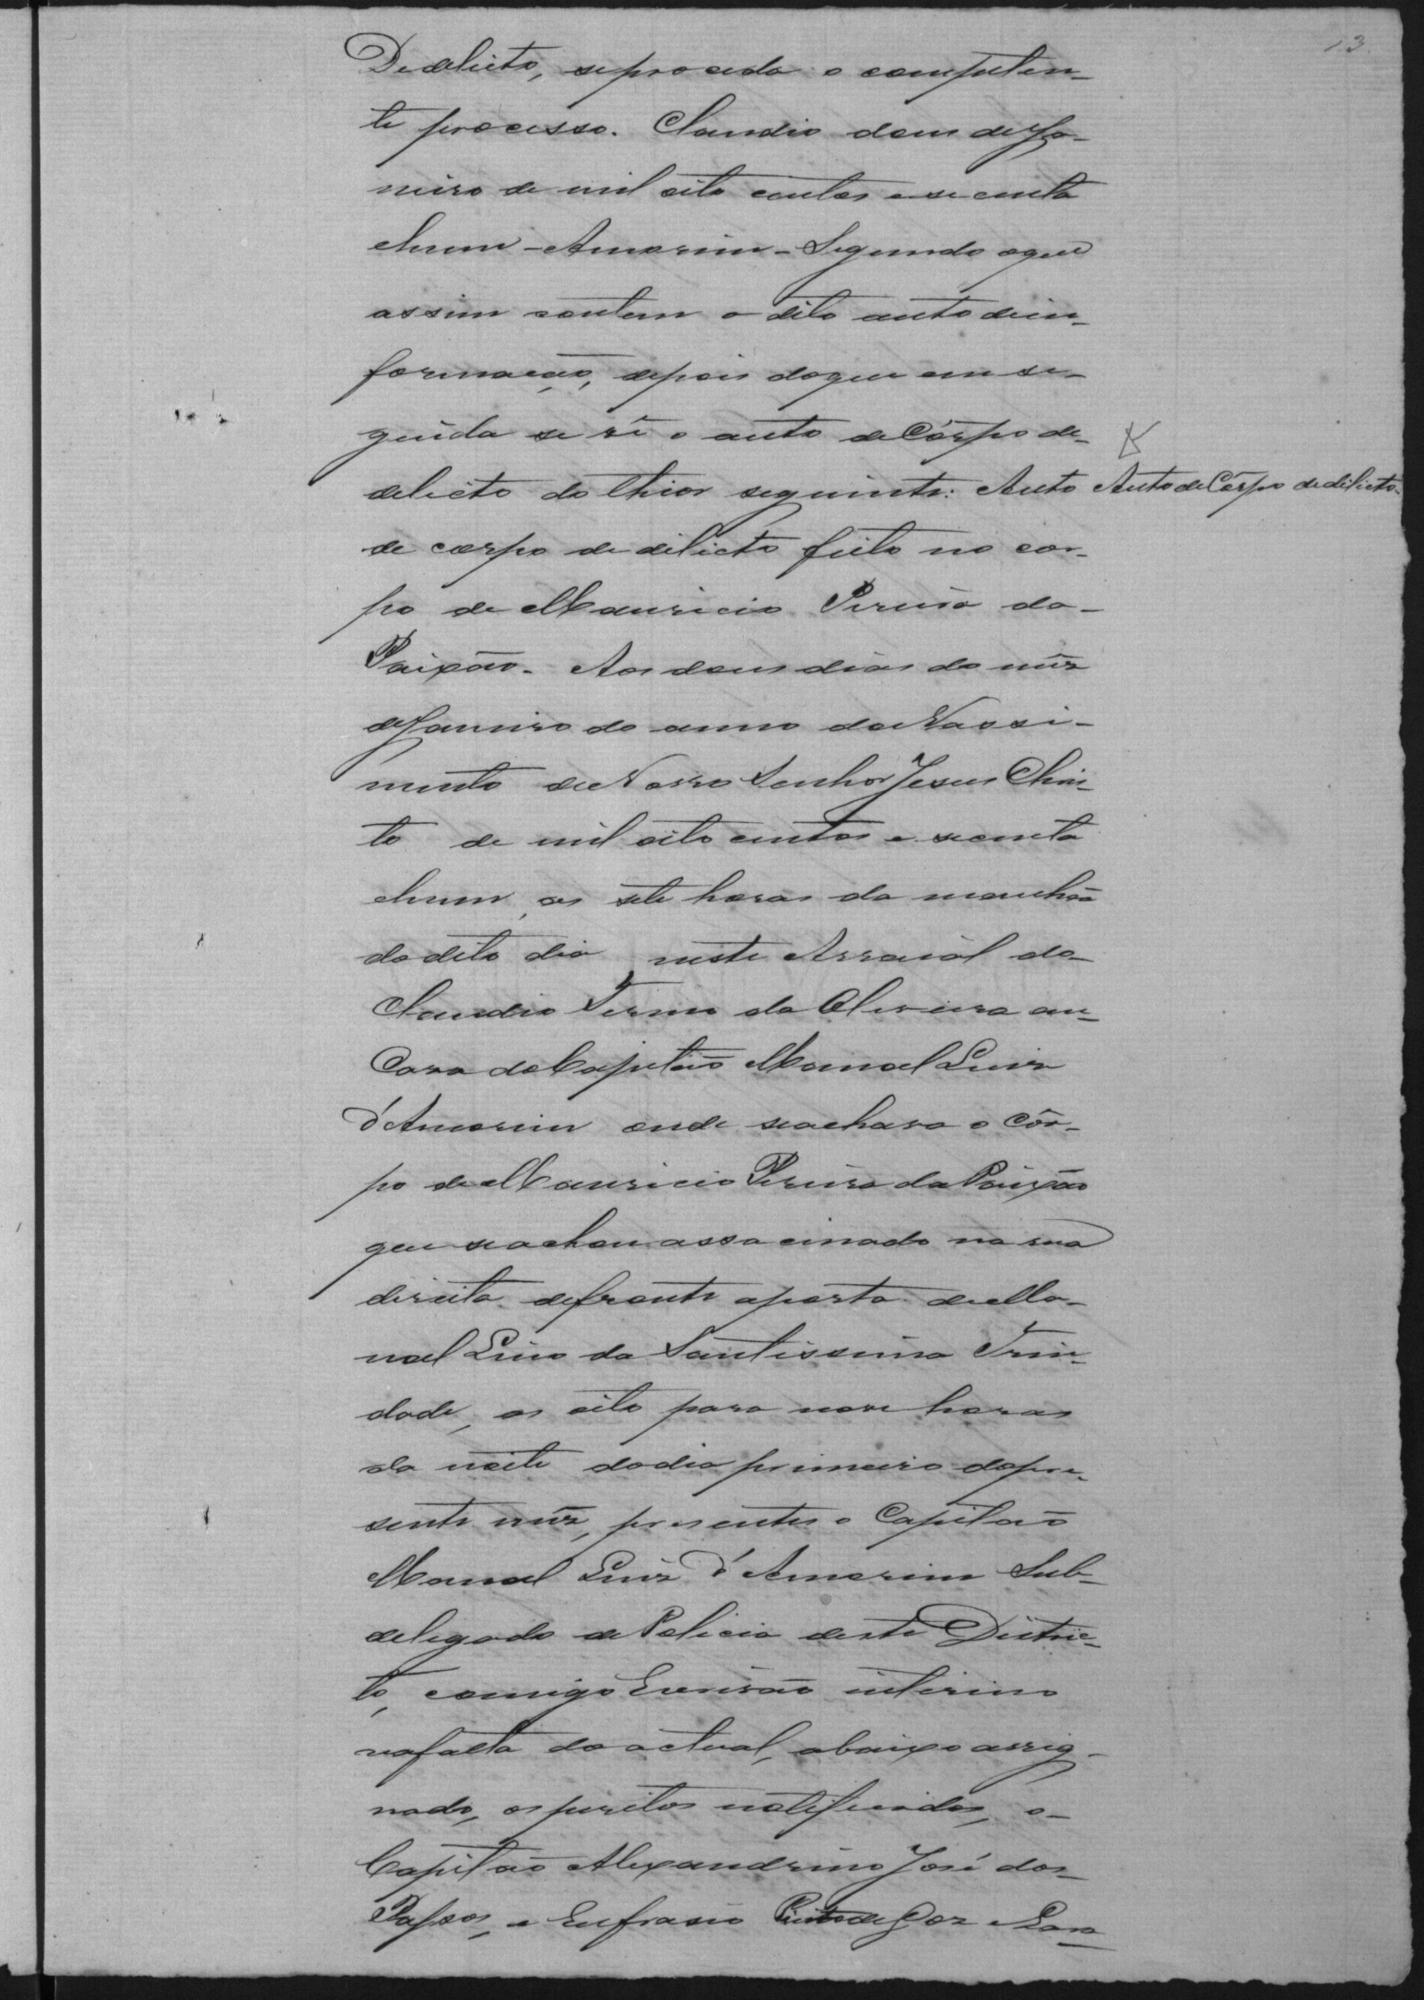 13.
De delicto, se proceda o competen-
te processo. Claudio dous de Ja-
neiro de mil oito centos e secenta
ehum - Amorim - Segundo oque
assim contem o dito auto de in-
formação, depois do que em se-
guida se vê o auto de Côrpo de-
delicto do thior seguinte: Auto
Auto de Côrpo de delicto.
de corpo de delicto feito no cor-
po de Mauricio Pereira da-
Paixão. Aos dous dias do mêz
de Janeiro do anno do Nassi-
mento de Nosso Senhor Jesus Chris-
to de mil oito centos e secenta
ehum, as sete horas da manhãa
do dito dia neste Arraial do-
Claudio Termo da Oliveira em-
Casa do Capitão Manoel Luiz
d'Amorim onde seachava o côr-
po de Mauricio Pereira da Paixão
que seachou assacinado na rua
direita defronte aporta de Ma-
noel Lino da Santissima Trin-
dade, as oito para nove horas
da noite do dia primeiro do pre-
sente mêz, presentes o Capitão
Manoel Luiz d'Amorim Sub-
delegado de Policia deste Distric-
to, comigo Escrivão interino
nafalta do actual, abaixo assig-
nado, os peritos notificados, o-
Capitão Alexandrino José dos-
Passos, e Eufrasio Pinto de Goz